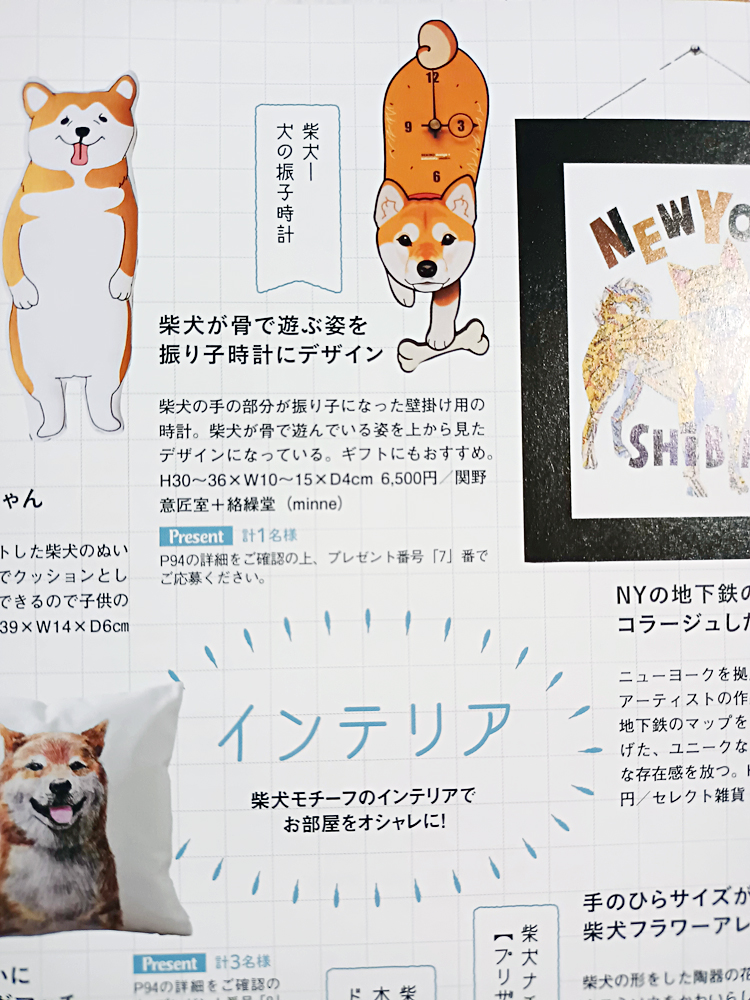 柴犬—
犬の振子時計
12
9
3
6
柴犬が骨で遊ぶ姿を
振り子時計にデザイン
柴犬の手の部分が振り子になった壁掛け用の
時計。柴犬が骨で遊んでいる姿を上から見た
デザインになっている。ギフトにもおすすめ。
H30〜36×W10〜15×D4cm 6,500円／関野
意匠室＋絡繰堂（minne）
Present 計1名様
P94の詳細をご確認の上、プレゼント番号「7」番で
ご応募ください。
ゃん
トした柴犬のぬい
でクッションとし
できるので子供の
39×W14×D6cm
NEW YO
SHIB
NYの地下鉄の
コラージュした
ニューヨークを拠
アーティストの作
地下鉄のマップを
げた、ユニークな
な存在感を放つ。
円／セレクト雑貨
インテリア
柴犬モチーフのインテリアで
お部屋をオシャレに!
手のひらサイズが
柴犬フラワーアレ
柴犬の形をした陶器の花
柴犬ナチ
【プリザ
Present 計3名様
P94の詳細をご確認の
いに